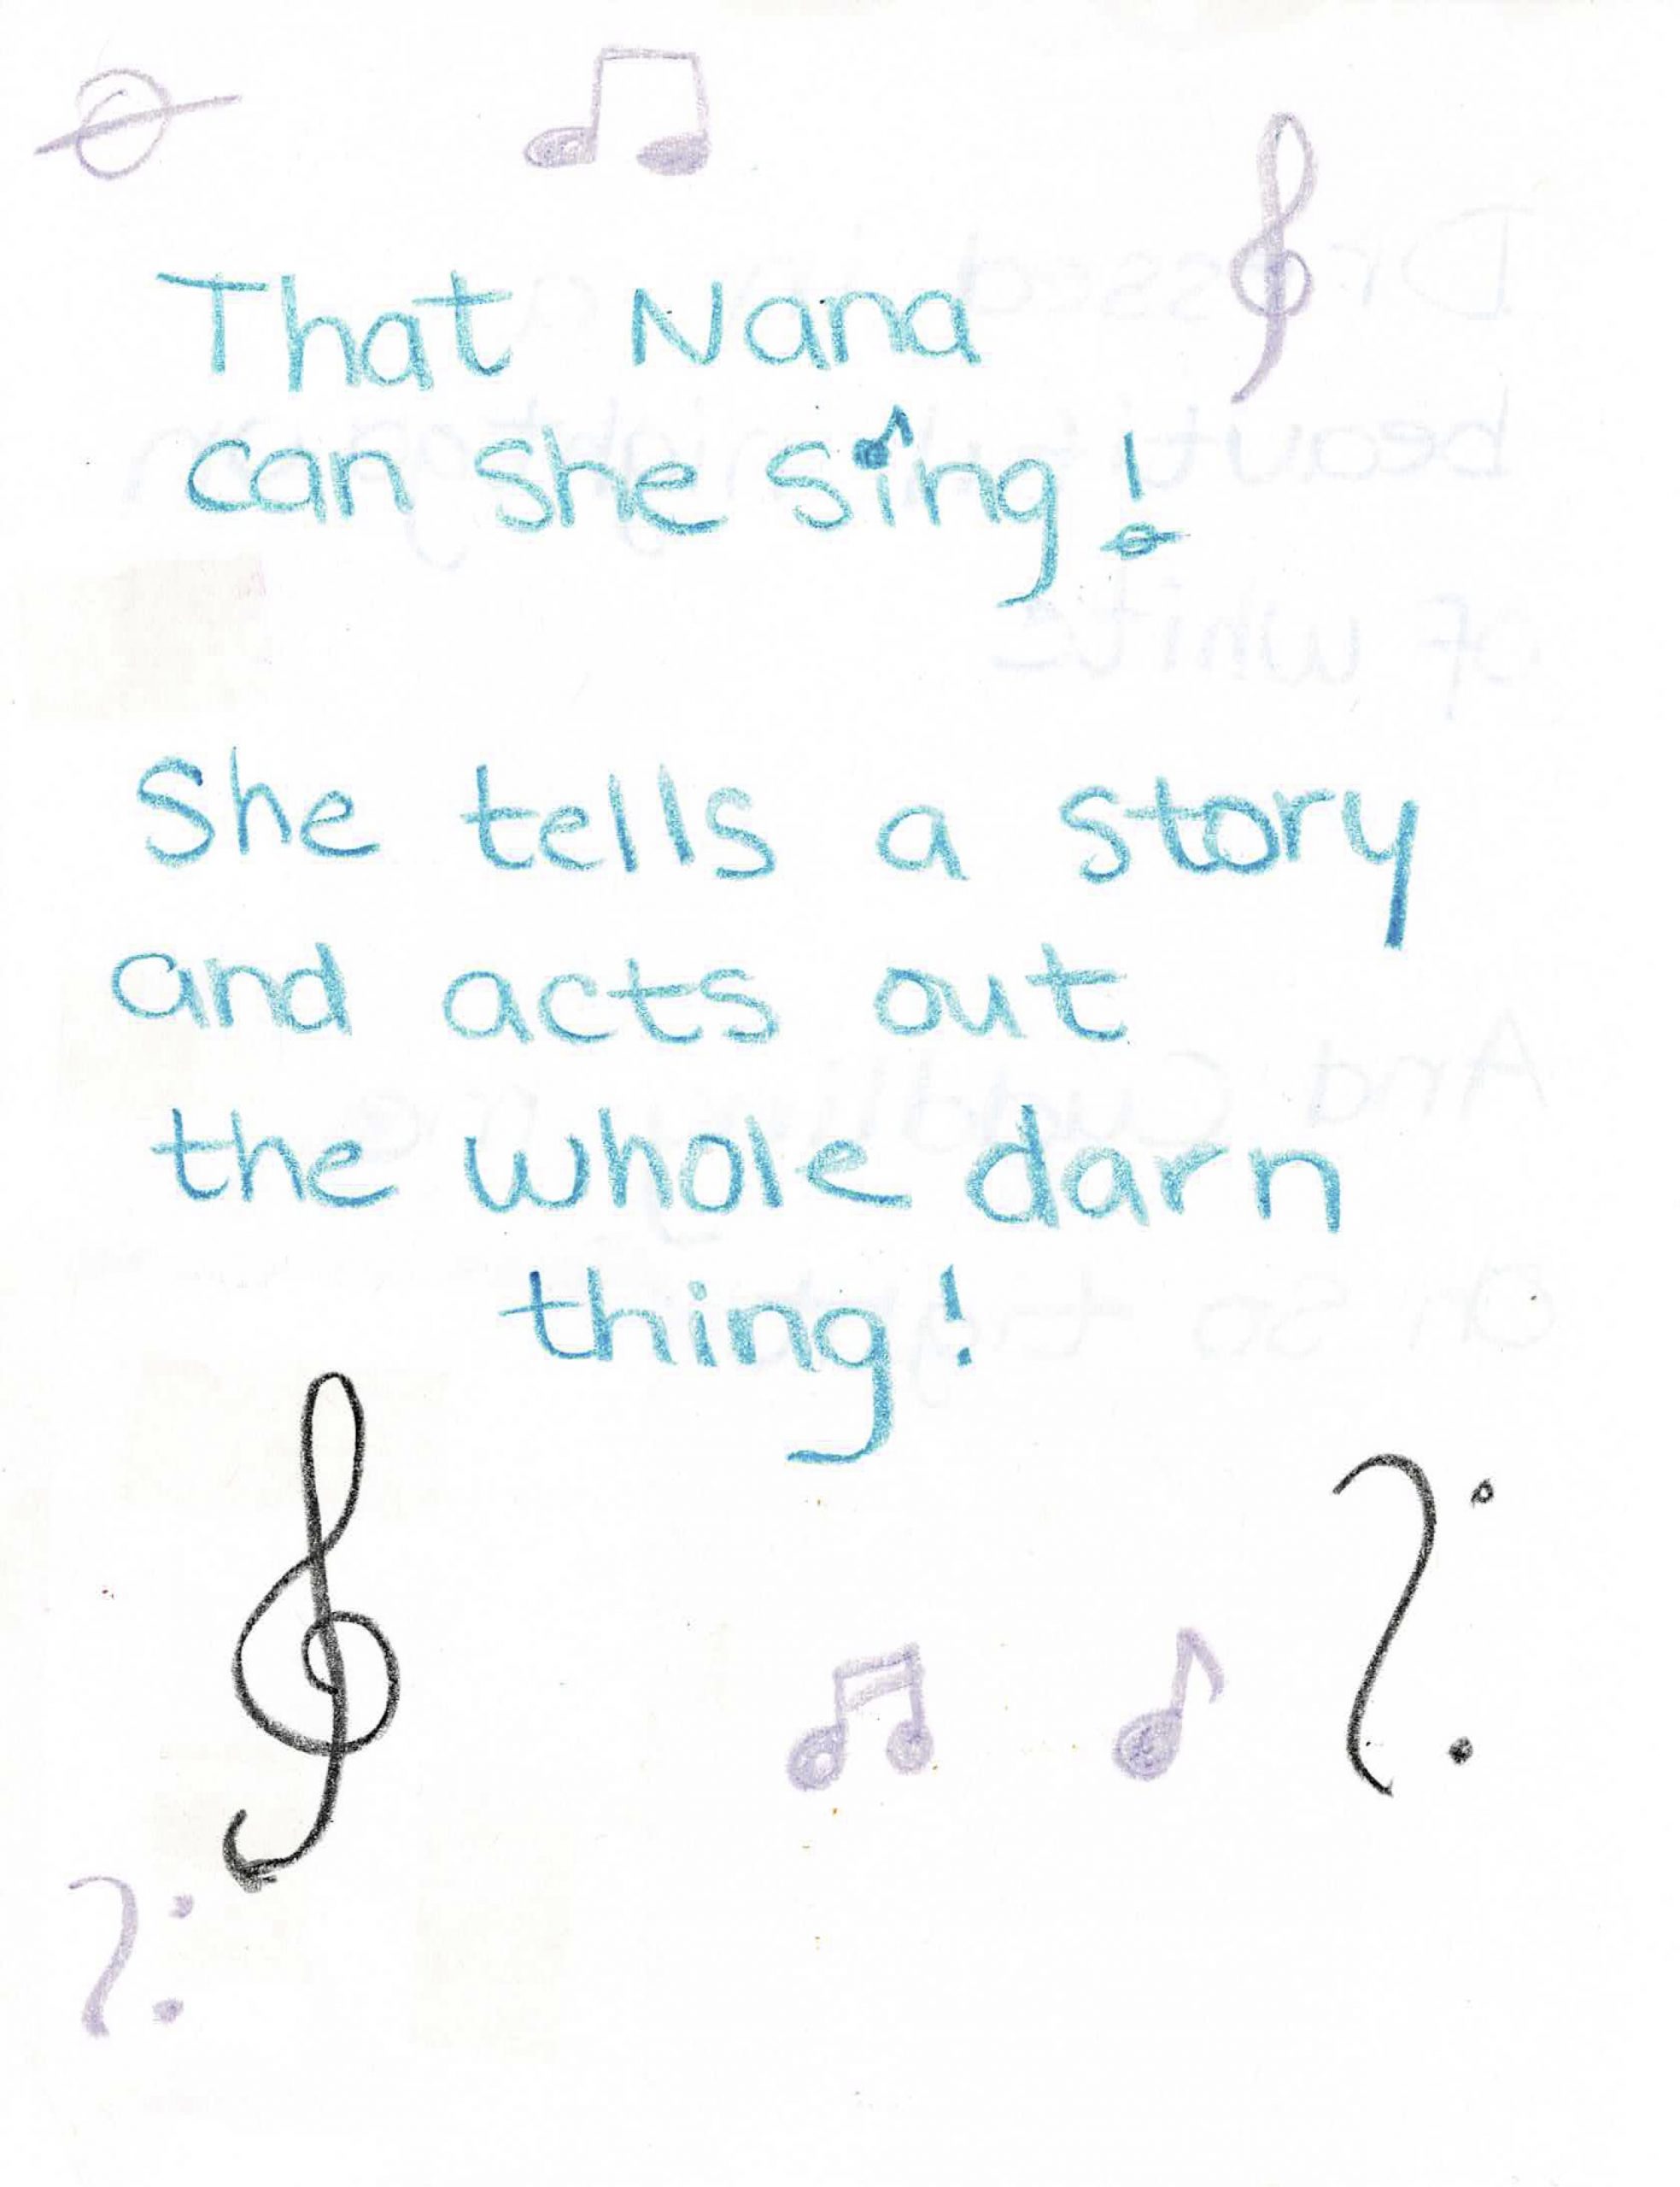 That Nana
can she sing!
She tells a story
and acts out
the whole darn
thing!